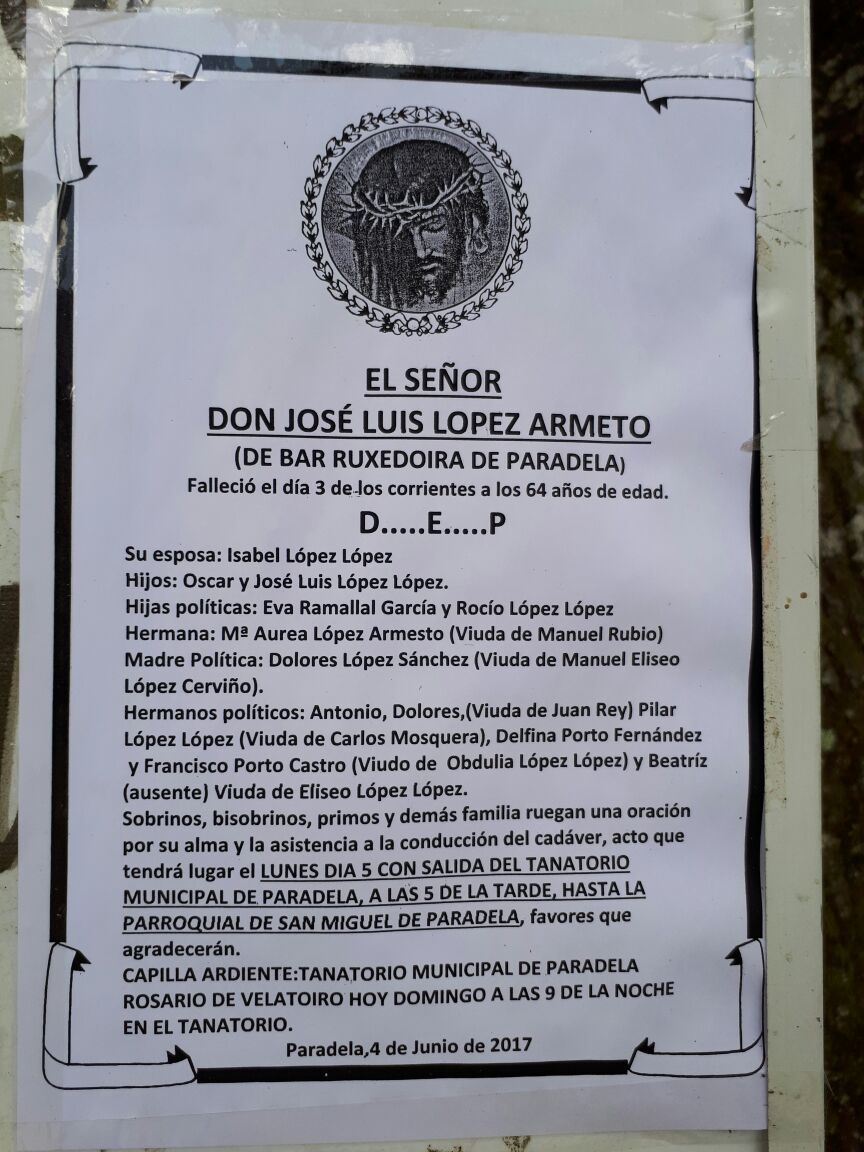 EL SEÑOR
DON JOSÉ LUIS LOPEZ ARMETO
(DE BAR RUXEDOIRA DE PARADELA)
Falleció el día 3 de los corrientes a los 64 años de edad.
D.....E.....P
Su esposa: Isabel López López
Hijos: Oscar y José Luis López López.
Hijas políticas: Eva Ramallal García y Rocío López López
Hermana: Mª Aurea López Armesto (Viuda de Manuel Rubio)
Madre Política: Dolores López Sánchez (Viuda de Manuel Eliseo
López Cerviño).
Hermanos políticos: Antonio, Dolores,(Viuda de Juan Rey) Pilar
López López (Viuda de Carlos Mosquera), Delfina Porto Fernández
y Francisco Porto Castro (Viudo de Obdulia López López) y Beatríz
(ausente) Viuda de Eliseo López López.
Sobrinos, bisobrinos, primos y demás familia ruegan una oración
por su alma y la asistencia a la conducción del cadáver, acto que
tendrá lugar el LUNES DIA 5 CON SALIDA DEL TANATORIO
MUNICIPAL DE PARADELA, A LAS 5 DE LA TARDE, HASTA LA
PARROQUIAL DE SAN MIGUEL DE PARADELA, favores que
agradecerán.
CAPILLA ARDIENTE:TANATORIO MUNICIPAL DE PARADELA
ROSARIO DE VELATOIRO HOY DOMINGO A LAS 9 DE LA NOCHE
EN EL TANATORIO.
Paradela,4 de Junio de 2017